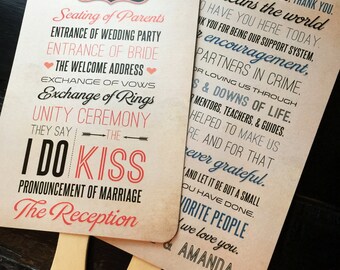 Seating of Parents
ENTRANCE OF WEDDING PARTY
ENTRANCE OF BRIDE
THE WELCOME ADDRESS
EXCHANGE OF VOWS
Exchange of Rings
UNITY CEREMONY
THEY SAY THE
I DO KISS
PRONOUNCEMENT OF MARRIAGE
The Reception
THANK YOU.
means the world
TO HAVE YOU HERE TODAY.
YOU FOR BEING OUR SUPPORT SYSTEM,
encouragement,
PARTNERS IN CRIME,
FOR LOVING US THROUGH
& DOWNS OF LIFE.
MENTORS, TEACHERS, & GUIDES.
HELPED TO MAKE US
ARE, AND FOR THAT
ever grateful.
AND LET IT BE BUT A SMALL
YOU HAVE DONE.
FAVORITE PEOPLE
we love you.
& AMANDA